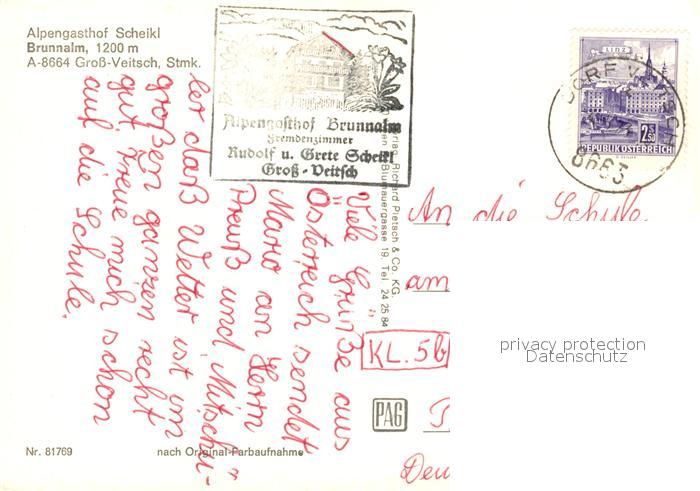 Alpengasthof Scheikl
Brunnalm, 1200 m
A-8664 Groß-Veitsch, Stmk.
Alpengasthof Brunnalm
Fremdenzimmer
Rudolf u. Grete Scheikl
Groß-Veitsch
LINZ
2.50
REPUBLIK ÖSTERREICH
8663
Viele Grüße aus
Österreich sendet
Mario an Herrn
Preuß und Mitschü-
ler daß Wetter ist im
großen ganzen recht
gut freue mich schon
auf die Schule.
Richard Pietsch & Co. KG.
Blumauergasse 19, Tel. 24 25 84
An die Schule
am
KL. 5b
PAG
privacy protection
Datenschutz
Nr. 81769
nach Original-Farbaufnahme